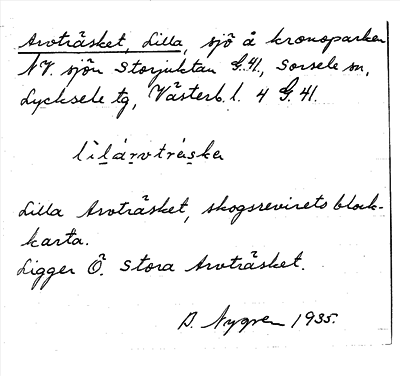 Arvträsket, Lilla, sjö å kronoparken
NV. sjön Storjuktan G.41., Sorsele sn,
Lycksele tg, Västerb. l. 4 G. 41.
lìlárvtrǻska
Lilla Arvträsket, skogsrevirets block-
karta.
Ligger Ö. Stora Arvträsket.
D. Nygren 1935.